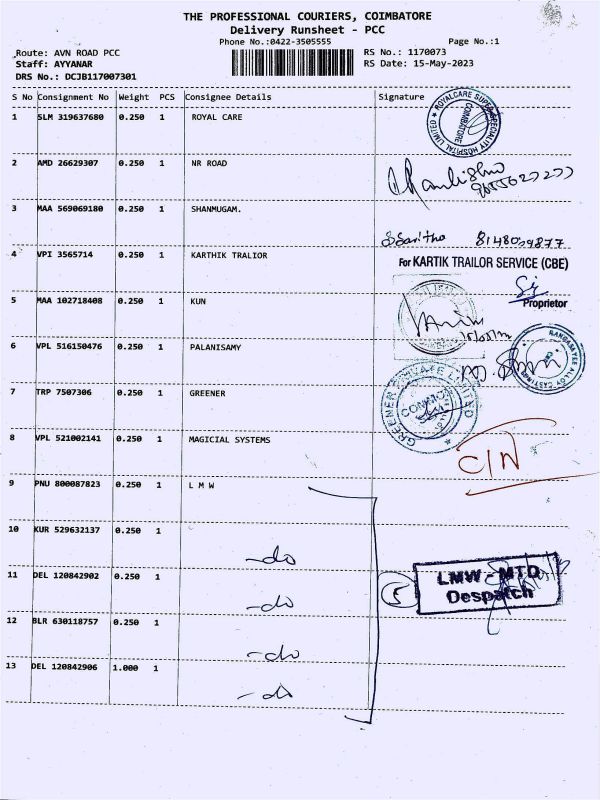 THE PROFESSIONAL COURIERS, COIMBATORE
Delivery Runsheet - PCC
Phone No.:0422-3505555
Page No.:1
Route: AVN ROAD PCC
RS No.: 1170073
Staff: AYYANAR
RS Date: 15-May-2023
DRS No.: DCJB117007301
S No Consignment No Weight PCS Consignee Details Signature
1 SLM 319637680 0.250 1 ROYAL CARE
ROYALCARE SUPER SPECIALITY HOSPITAL LIMITED
COIMBATORE
2 AMD 26629307 0.250 1 NR ROAD
3 MAA 569069180 0.250 1 SHANMUGAM.
4 VPI 3565714 0.250 1 KARTHIK TRALIOR
For KARTIK TRAILOR SERVICE (CBE)
Proprietor
5 MAA 102718408 0.250 1 KUN
6 VPL 516150476 0.250 1 PALANISAMY
7 TRP 7507306 0.250 1 GREENER
GREENER PRIVATE LIMITED
8 VPL 521002141 0.250 1 MAGICIAL SYSTEMS
C/N
9 PNU 800087823 0.250 1 L M W
10 KUR 529632137 0.250 1
-do
11 DEL 120842902 0.250 1
-do
5
LMW - MTD
Despatch
12 BLR 630118757 0.250 1
-do
13 DEL 120842906 1.000 1
-do